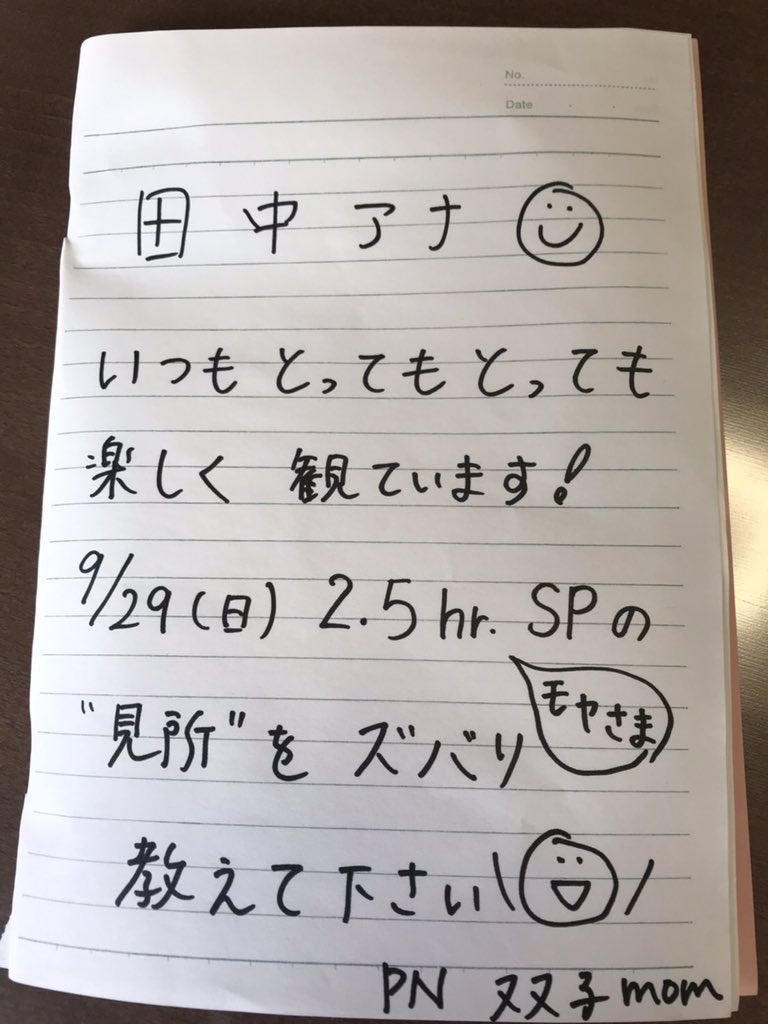 No.
Date
田中アナ
いつもとってもとっても
楽しく 観ています!
9/29(日) 2.5hr. SPの
モヤさま
"見所"を ズバリ
教えて下さい
PN 双子mom